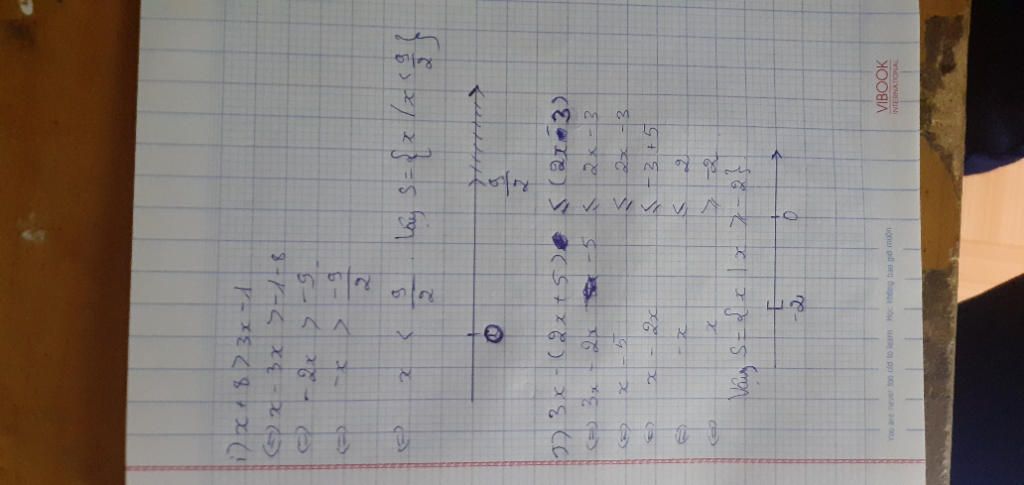 i) x + 8 > 3x - 1
(=) x - 3x > -1 - 8
(=) -2x > -9
(=) -x > -9/2
(=) x < 9/2 . Vậy S = { x / x < 9/2 }
0 9/2
3x - (2x + 5) ≤ (2x - 3)
(=) 3x - 2x - 5 ≤ 2x - 3
(=) x - 5 ≤ 2x - 3
(=) x - 2x ≤ -3 + 5
(=) -x ≤ 2
(=) x ⩾ -2
Vậy S = { x | x ⩾ -2 }
-2 0
You are never too old to learn Học không bao giờ muộn
VIBOOK
INTERNATIONAL